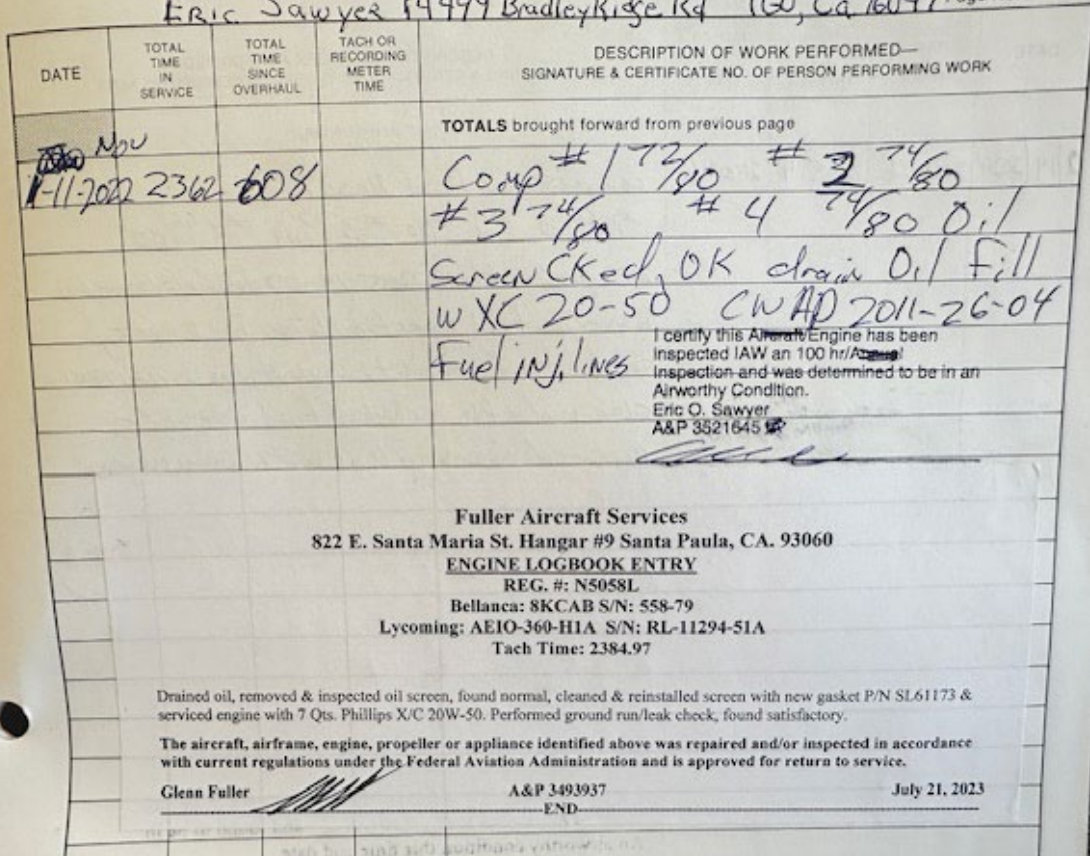 Eric Sawyer 14999 Bradley Ridge Rd IGO, Ca 96047
DATE
TOTAL TIME IN SERVICE
TOTAL TIME SINCE OVERHAUL
TACH OR RECORDING METER TIME
DESCRIPTION OF WORK PERFORMED—
SIGNATURE & CERTIFICATE NO. OF PERSON PERFORMING WORK
TOTALS brought forward from previous page
Nov
1-11-2022 2362 608 Comp #1 72/80 #2 74/80
#3 74/80 #4 74/80 Oil
Screen CKed, OK drain Oil Fill
w XC 20-50 CW AD 2011-26-04
Fuel inj. lines
I certify this Aircraft/Engine has been
Inspected IAW an 100 hr/Annual
Inspection and was determined to be in an
Airworthy Condition.
Eric O. Sawyer
A&P 3521645
Fuller Aircraft Services
822 E. Santa Maria St. Hangar #9 Santa Paula, CA. 93060
ENGINE LOGBOOK ENTRY
REG. #: N5058L
Bellanca: 8KCAB S/N: 558-79
Lycoming: AEIO-360-H1A S/N: RL-11294-51A
Tach Time: 2384.97
Drained oil, removed & inspected oil screen, found normal, cleaned & reinstalled screen with new gasket P/N SL61173 &
serviced engine with 7 Qts. Phillips X/C 20W-50. Performed ground run/leak check, found satisfactory.
The aircraft, airframe, engine, propeller or appliance identified above was repaired and/or inspected in accordance
with current regulations under the Federal Aviation Administration and is approved for return to service.
Glenn Fuller A&P 3493937 July 21, 2023
END